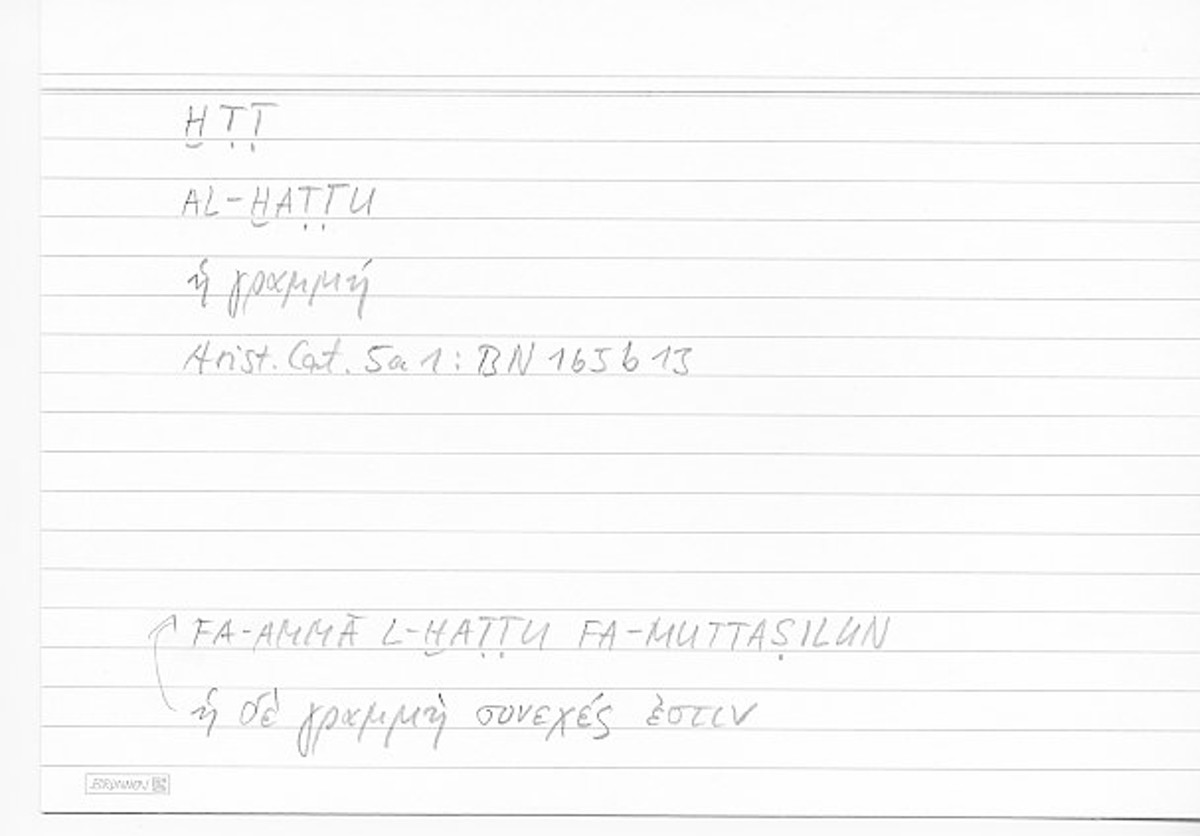 ḪṬṬ
AL-ḪAṬṬU
ἡ γραμμή
Arist. Cat. 5a1: BN 165b13
FA-AMMĀ L-ḪAṬṬU FA-MUTTAṢILUN
ἡ δὲ γραμμὴ συνεχές ἐστιν
BRUNNEN